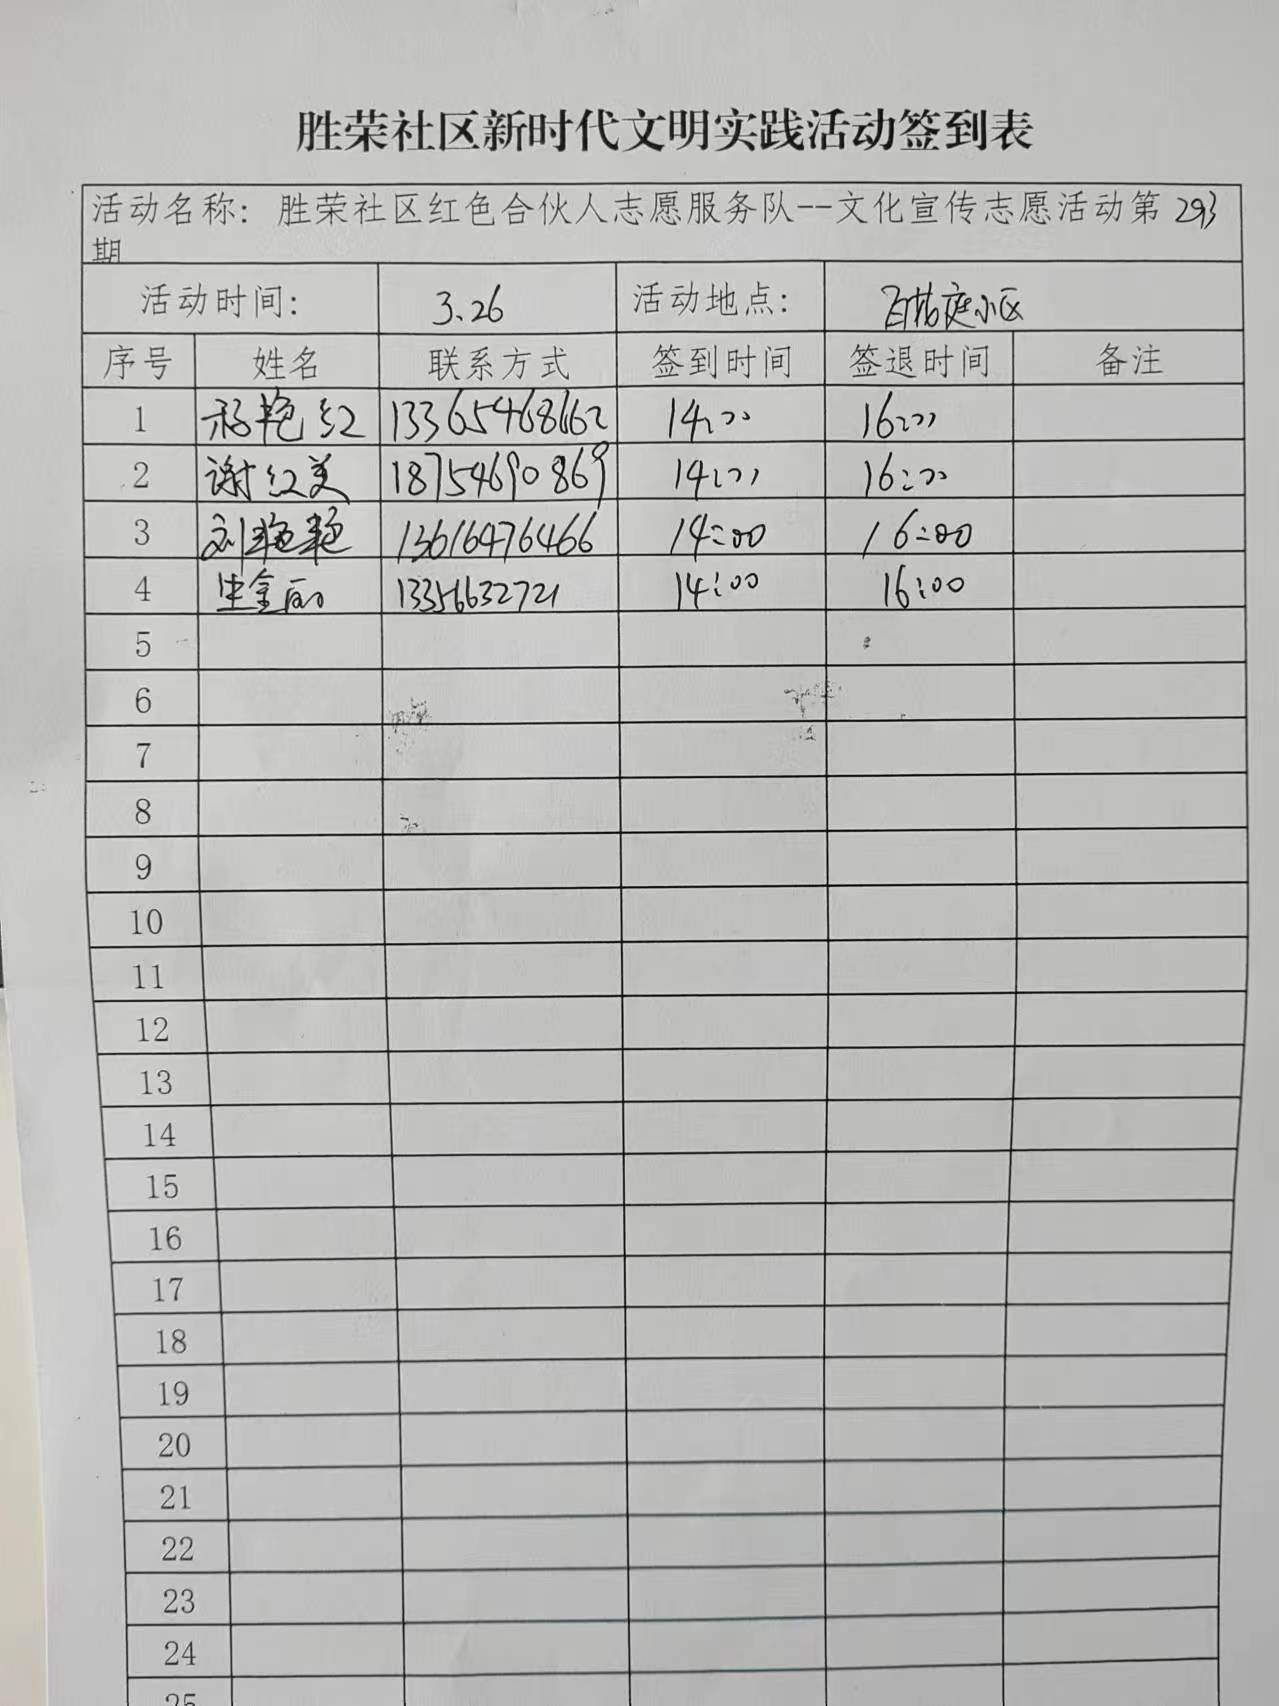 胜荣社区新时代文明实践活动签到表
活动名称：胜荣社区红色合伙人志愿服务队--文化宣传志愿活动第293
期
活动时间： 3.26 活动地点： 小区
序号 姓名 联系方式 签到时间 签退时间 备注
1 艳红 13365468662 14:00 16:00
2 谢红美 18754690869 14:00 16:00
3 刘艳艳 13616476466 14:00 16:00
4 金丽 13356632721 14:00 16:00
5
6
7
8
9
10
11
12
13
14
15
16
17
18
19
20
21
22
23
24
25